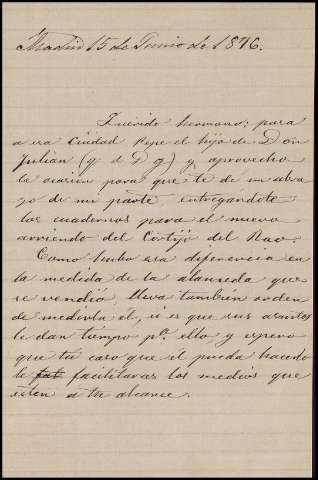 Madrid 15 de Junio de 1896.
Querido hermano: para
a esa Ciudad Pepe el hijo de Don
Julian (q d D g) y aprovecho
la ocasion para que te de un abra
zo de mi parte, entregandote
los cuadernos para el nuevo
arriendo del Cortijo del
Como hubo esa diferencia en
la medida de la alameda que
se vendió, lleva también orden
de medirla él, si es que sus asuntos
le dan tiempo pª ello y espero
que tu caso que él pueda hacerlo
le facilitaras los medios que
esten a tu alcance.